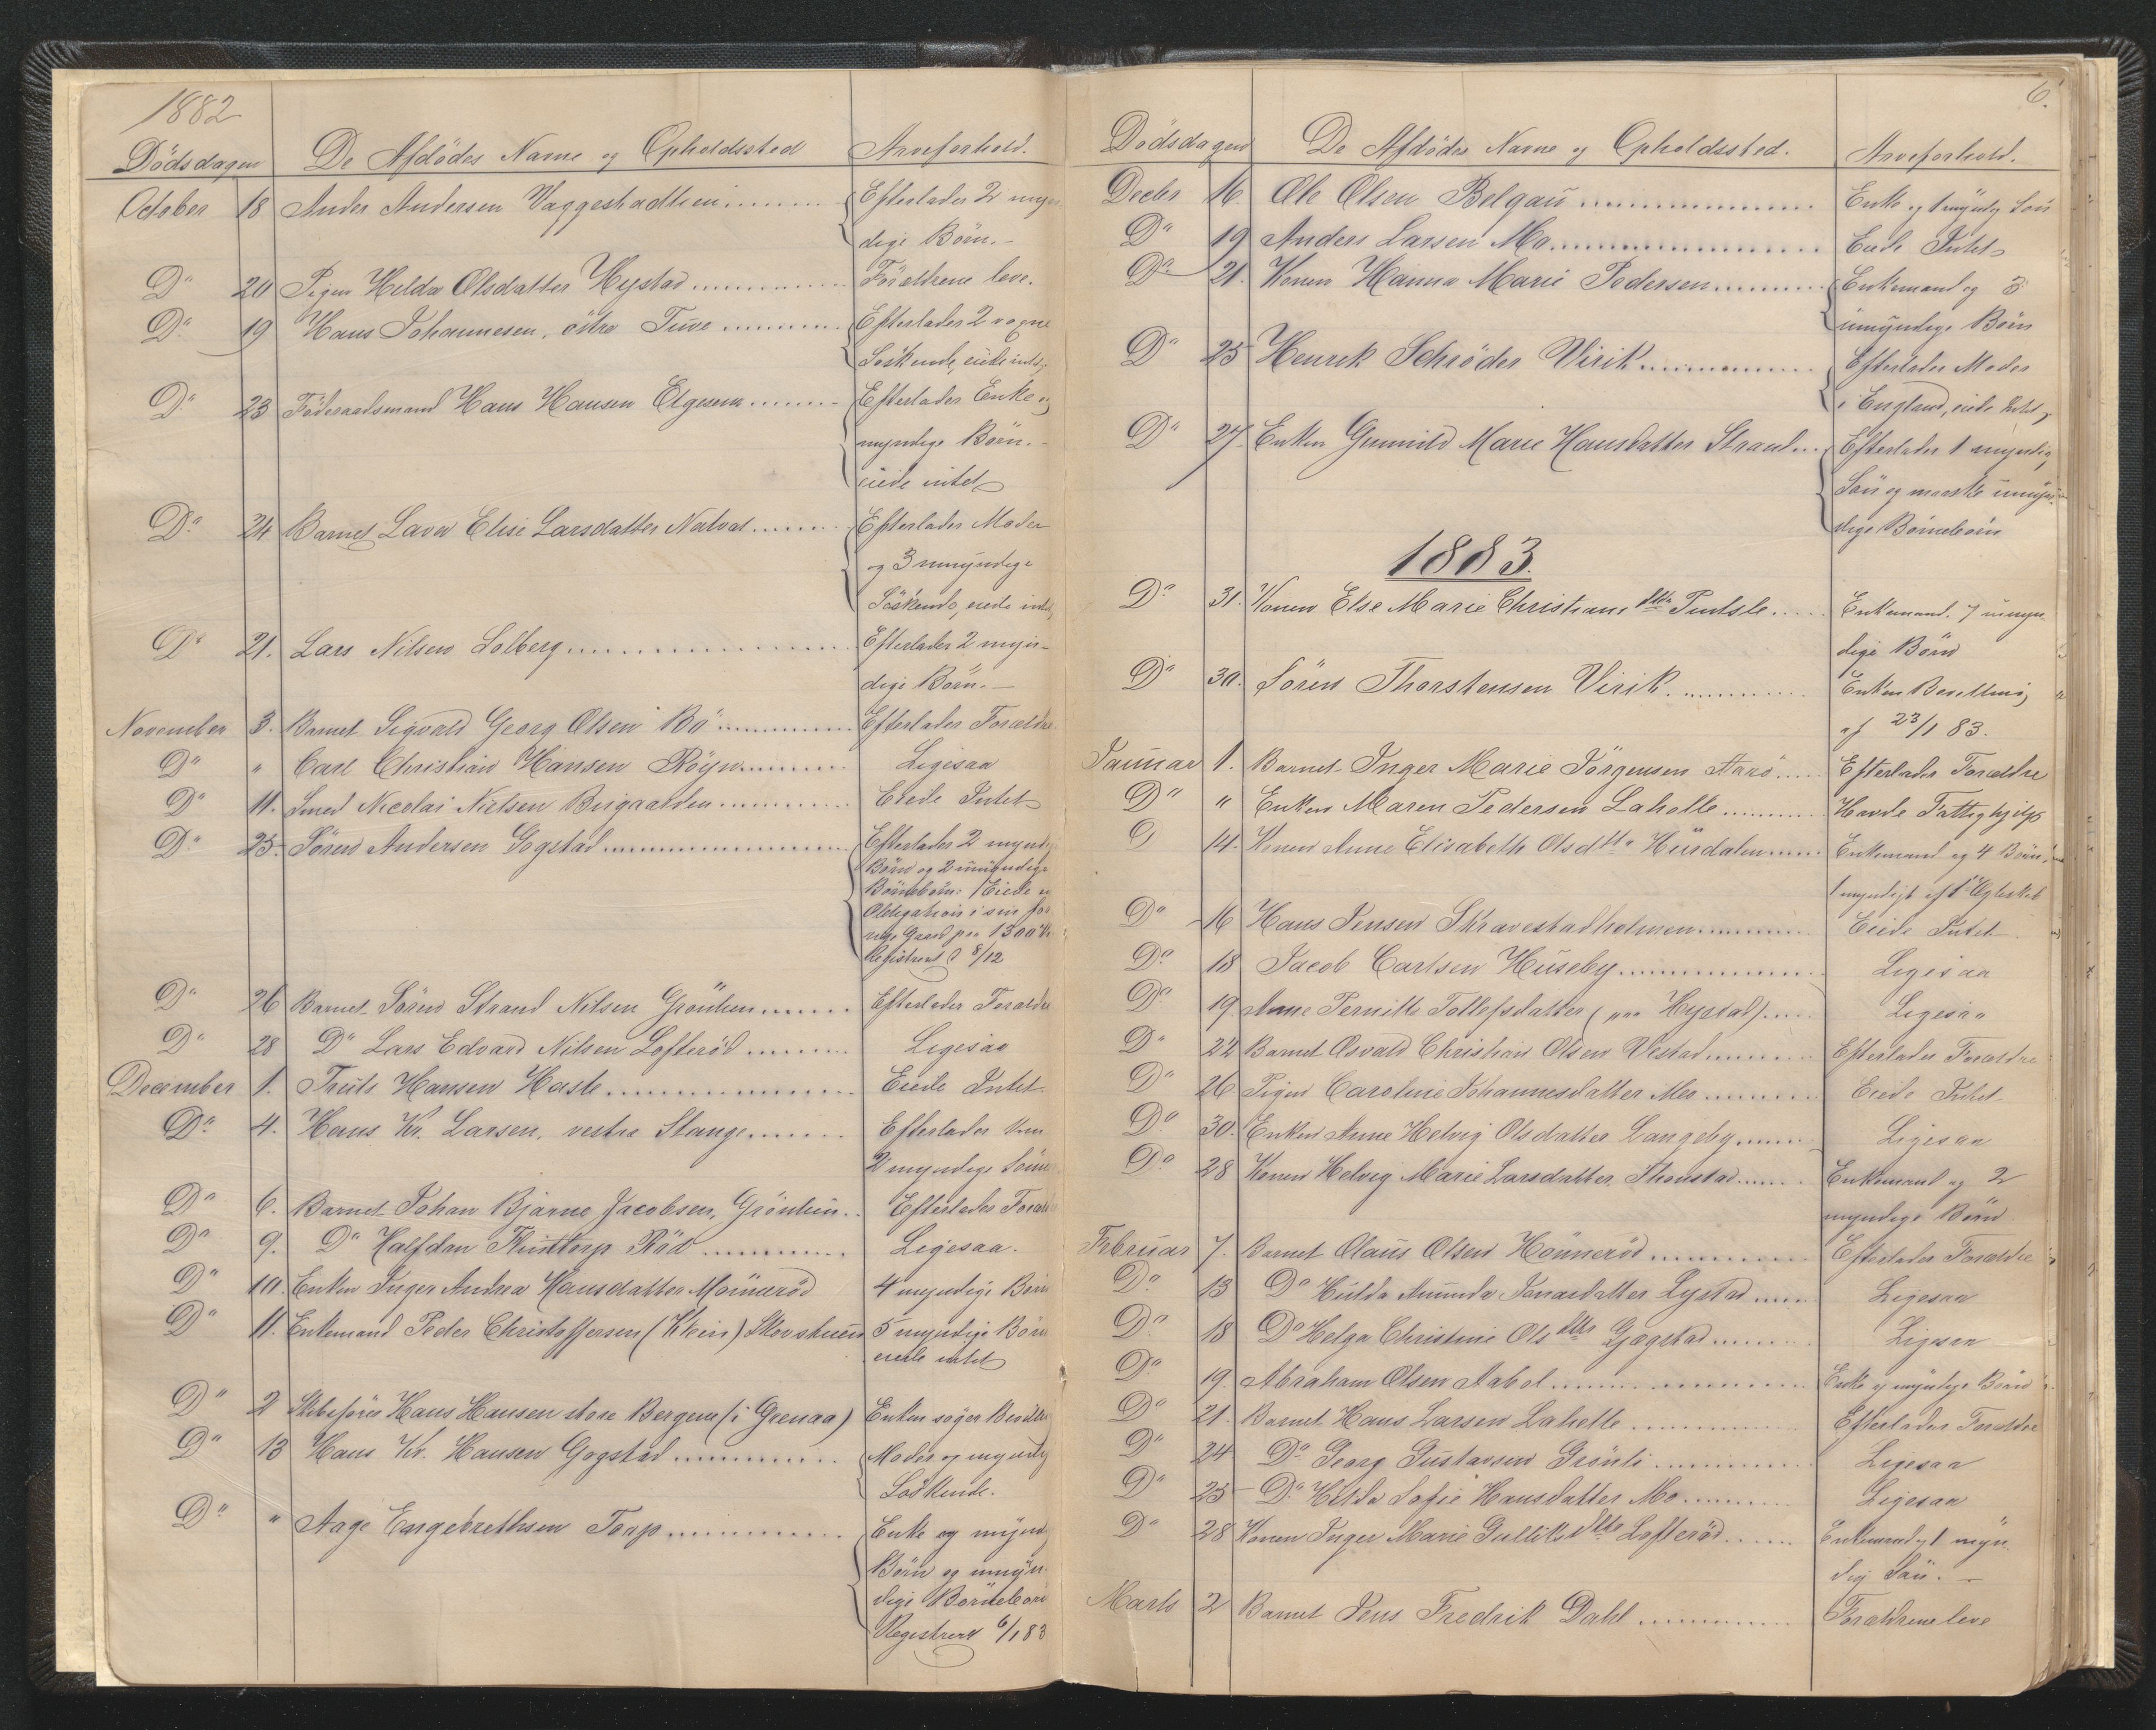 1882
Dödsdagen De Afdödes Navne og Opholdssted Arveforhold.
October 18 Anders Andersen Vaggestadhei Efterlader 2 myn-
dige Börn.-
Do 20 Pigen Helda Olsdatter Hystad Forældrene leve.
Do 19 Hans Johannesen, östre Tuve Efterlader 2 vogne
Söskende, eiede intet
Do 23 Föderaadsmand Hans Hansen Elgesem Efterlader Enke og
myndige Börn.-
eiede intet
Do 24 Barnet Lava Elise Larsdatter Natvad Efterlader Moder
og 3 umyndige
Söskende, eiede intet
Do 21. Lars Nilsen Solberg Efterlader 2 myn-
dige Börn.-
November 3. Barnet Sigvald Georg Olsen Bö Efterlader Forældre
Do " Carl Christian Hansen Röyn Ligesaa
Do 11. Smed Nicolai Nielsen Eiede Intet
Do 25. Sören Andersen Gogstad Efterlader 2 myndige
Börn og 2 umyndige
Börnebörn. Eiede en
Obligation i sin for-
rige Gaard paa 1300 Kr
Registreret 8/12
Do 26 Barnet Sören Strand Nilsen Grönlien Efterlader Forældre
Do 28 Do Lars Edvard Nilsen Lofteröd Ligesaa
December 1. Truls Hansen Hasle Eiede Intet
Do 4. Hans Kr. Larsen, vestre Stange Efterlader kun
2 myndige Sönner
Do 6. Barnet Johan Bjarne Jacobsen, Grönlien Efterlader Forældre
Do 9. Do Halfdan Röd Ligesaa.
Do 10. Enken Inger Andrea Hansdatter Mönneröd 4 myndige Börn
Do 11. Enkemand Peder Christoffersen (Klein) 5 myndige Börn
eiede intet
Do 2 Skibsförer Hans Hansen store Bergene (i Grenaa) Enken söger Bevilling
Do 13 Hans Kr. Hansen Gogstad Moder og myndig
Söskende.
Do " Aage Engebrethsen Torp Enke og mynd.
Börn og umyn-
dige Börnebörn
Registreret 6/1 83
6.
Dödsdagen De Afdödes Navne og Opholdssted. Arveforhold.
Decbr 16. Ole Olsen Belgau Enke og 1 myndig Sön
Do 19 Anders Larsen Mo Eiede Intet
Do 21. Konen Hanna Marie Pedersen Enkemand og 3
umyndige Börn
Do 25 Henrik Schröder Virik Efterlader Moder
i England, eiede Intet
Do 27. Enken Gunnild Marie Hansdatter Strand Efterlader 1 myndig
Sön og umyn-
dige Börnebörn
1883.
Do 31. Konen Else Marie Christians dtr Enkemand. 7 umyn-
dige Börn
Do 30. Sören Thorstensen Virik Enken Bevilling
af 23/1 83.
Januar 1. Barnet Inger Marie Jörgensen Aarö Efterlader Forældre
Do " Enken Maren Pedersen Laholle Havde Fattighjelp
Do 14. Konen Anne Elisabeth Olsdtr Hürdalen Enkemand og 4 Börn,
1 myndigt af 1ste Egteskab
Do 16 Hans Jensen Skravestadholmen Eiede Intet
Do 18 Jacob Carlsen Huseby Ligesaa
Do 19 Anne Pernille Tollefsdatter (paa Hystad) Ligesaa
Do 22 Barnet Osvald Christian Olsen Vestad Efterlader Forældre
Do 26 Pigen Caroline Johannesdatter Mo Eiede Intet
Do 30. Enken Anne Helvig Olsdatter Langeby Ligesaa
Do 28 Konen Helvig Marie Larsdatter Thorstad Enkemand og 2
myndige Börn
Februar 7. Barnet Olaus Olsen Hönneröd Efterlader Forældre
Do 13 Do Hulda Amunda Jonasdatter Lystad Ligesaa
Do 18 Do Helga Christine Ols dtr Gogstad Ligesaa
Do 19. Abraham Olsen Aabol Enke og myndige Börn
Do 21. Barnet Hans Larsen Lahelle Efterlader Forældre
Do 24 Do Georg Gustavsen Grönli Ligesaa
Do 25 Do Hilda Sofie Hansdatter Mo Ligesaa
Do 28 Konen Inger Marie Gulliks dtr Lofteröd Enkemand og 1 myn-
dig Sön.-
Marts 2 Barnet Jens Fredrik Dahl Forældrene leve